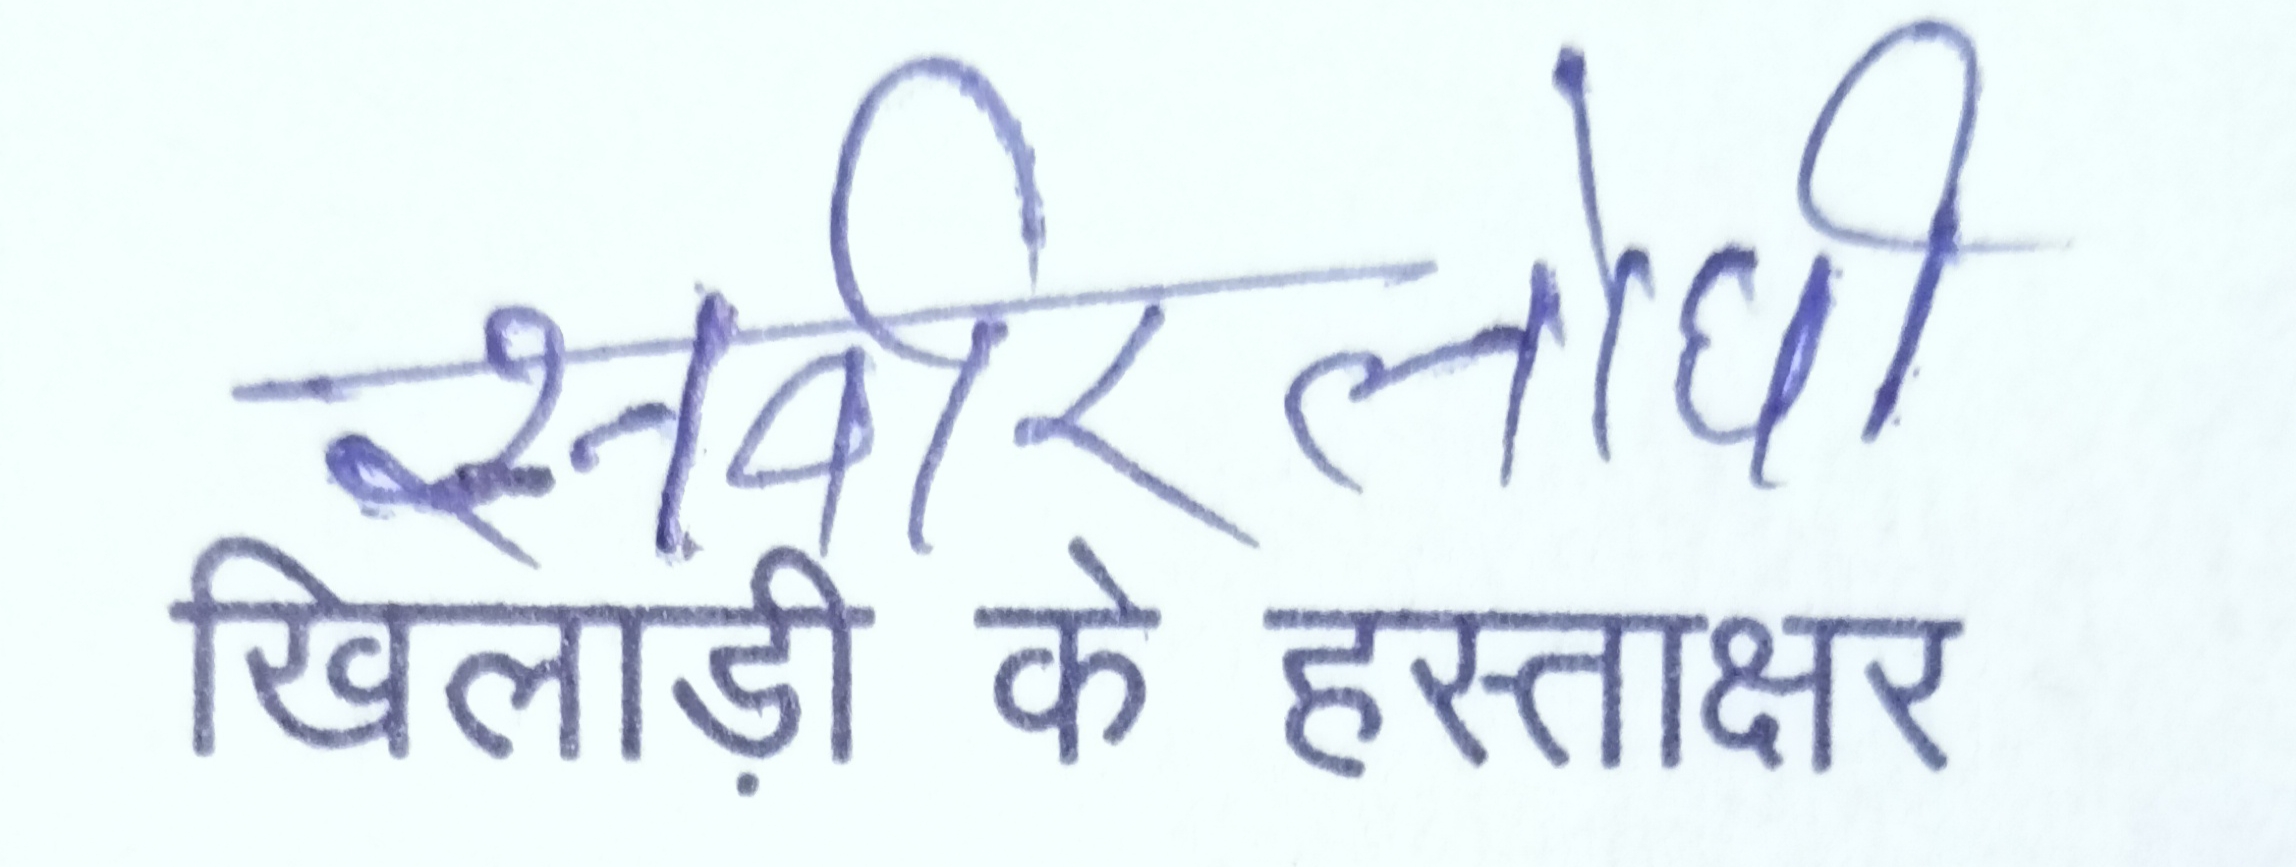 सत्वीर लोधी
खिलाड़ी के हस्ताक्षर